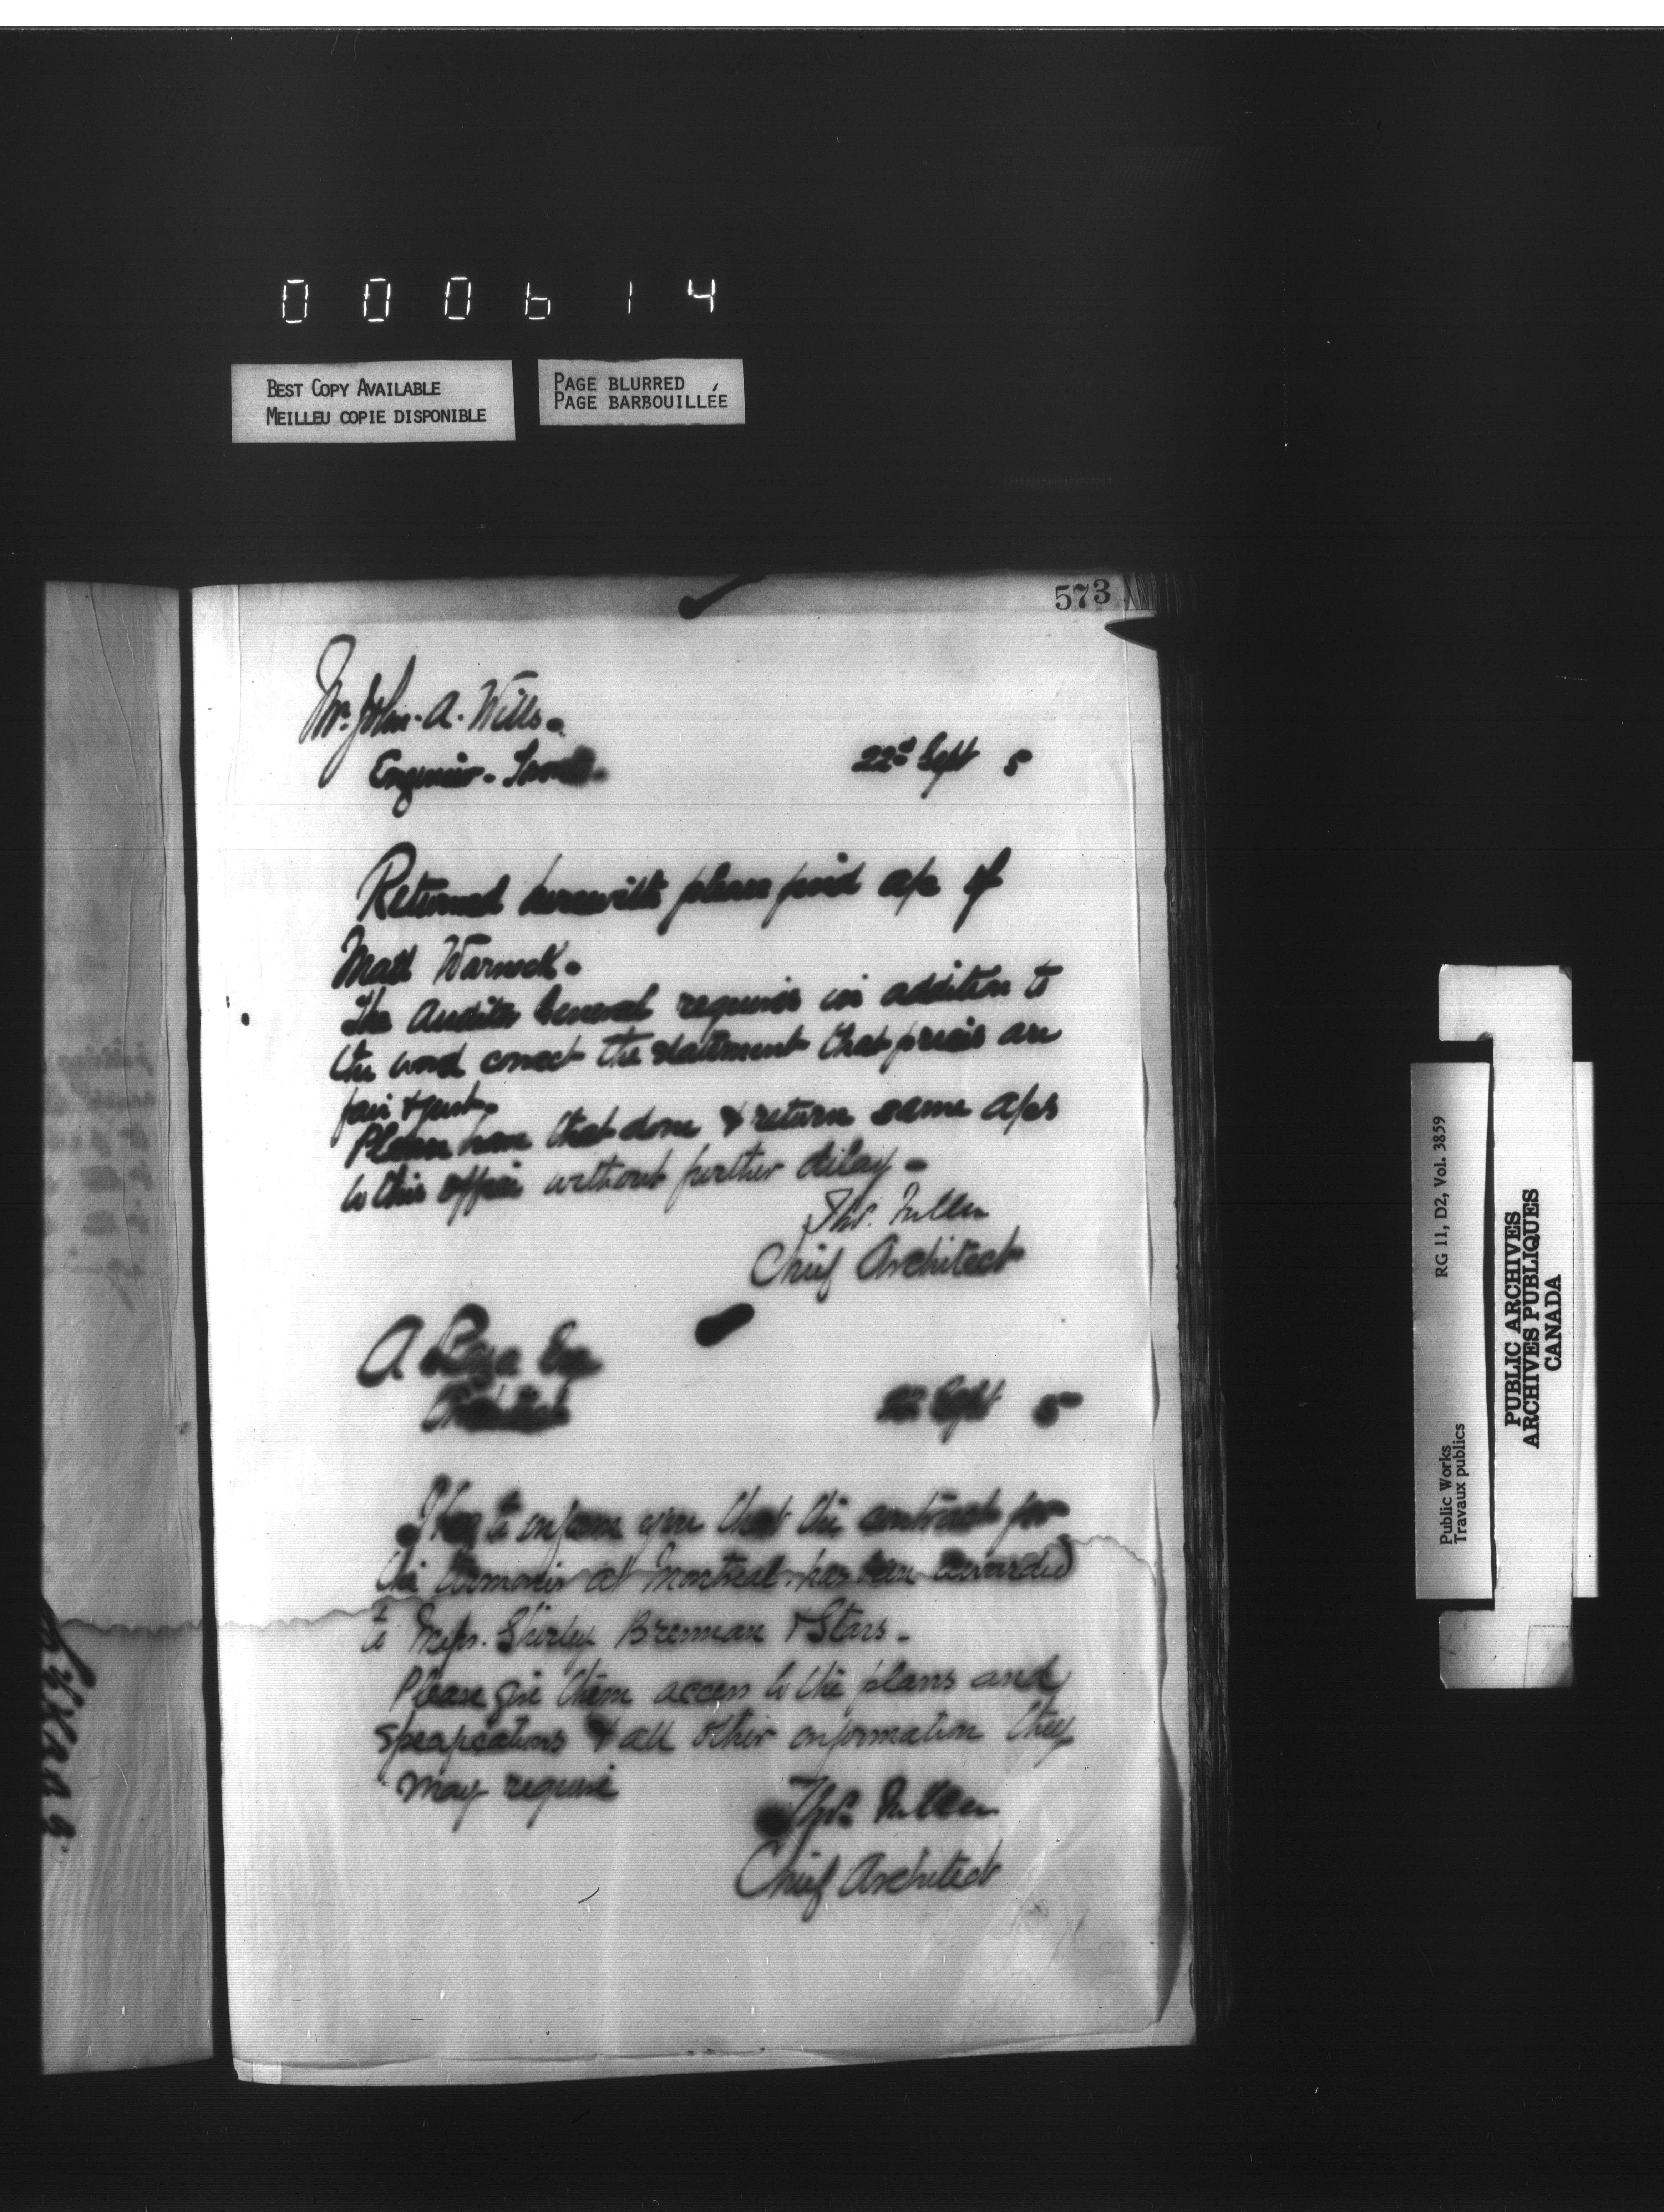 000614
BEST COPY AVAILABLE
MEILLEU COPIE DISPONIBLE
PAGE BLURRED
PAGE BARBOUILLÉE
573
Mr. John. A. Wills.
Engineer -
22d Sept 5
Returned herewith please find a/c of
Matt Warnock.
The Auditor General requires in addition to
the word correct the statement that prices are
fair & just.
Please have that done & return same a/cs
to this office without further delay -
Thos. Fuller
Chief Architect
A. Raza Esq
Architect
22 Sept 5
I beg to inform you that the contract for
the Armories at Montreal. has been awarded
to Messrs. Shirley Brennan & Stars.
Please give them access to the plans and
specifications & all other information they
may require
Thos. Fuller
Chief Architect
Public Works
Travaux publics
RG 11, D2, Vol. 3859
PUBLIC ARCHIVES
ARCHIVES PUBLIQUES
CANADA